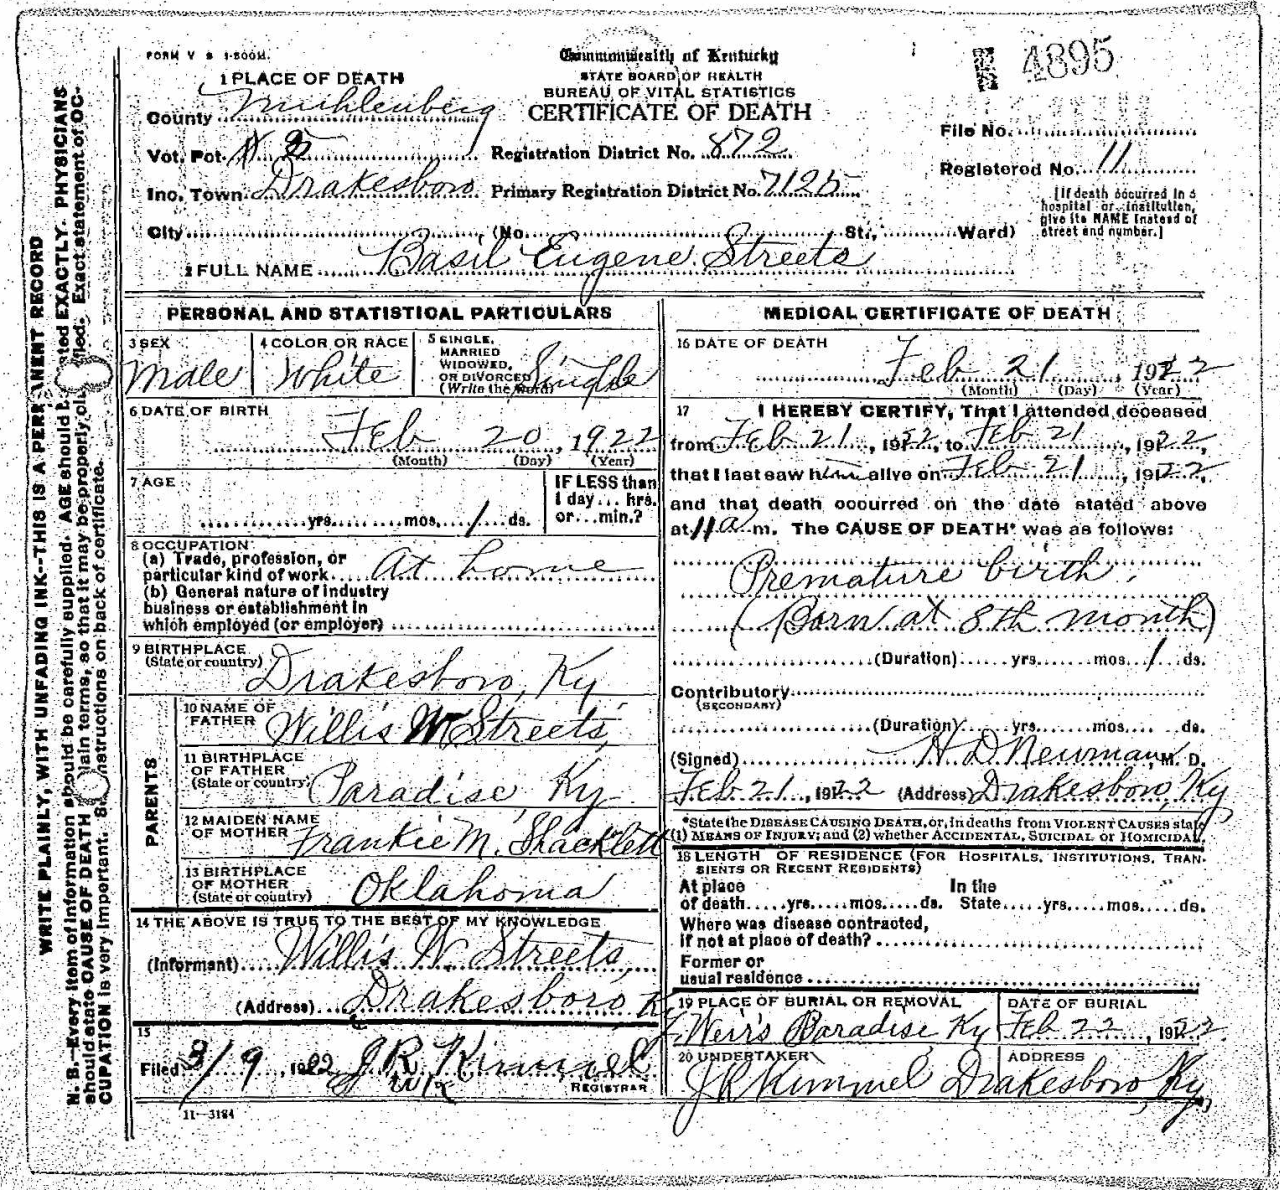 FORM V S 1-500M.
Commonwealth of Kentucky
STATE BOARD OF HEALTH
BUREAU OF VITAL STATISTICS
CERTIFICATE OF DEATH
4895
1 PLACE OF DEATH
County Muhlenberg
Vot. Pct.
Inc. Town Drakesboro
City (No. St., Ward)
Registration District No. 872
Primary Registration District No. 7125
File No.
Registered No. 11
[If death occurred in a
hospital or institution,
give its NAME instead of
street and number.]
2 FULL NAME Basil Eugene Streets
PERSONAL AND STATISTICAL PARTICULARS
3 SEX
Male
4 COLOR OR RACE
White
5 SINGLE,
MARRIED
WIDOWED,
OR DIVORCED
(Write the word)
Single
6 DATE OF BIRTH
Feb 20, 1922
(Month) (Day) (Year)
7 AGE
yrs. mos. 1 ds.
IF LESS than
1 day... hrs.
or... min.?
8 OCCUPATION
(a) Trade, profession, or
particular kind of work At home
(b) General nature of industry
business or establishment in
which employed (or employer)
9 BIRTHPLACE
(State or country) Drakesboro, Ky
PARENTS
10 NAME OF
FATHER Willis W Streets,
11 BIRTHPLACE
OF FATHER
(State or country) Paradise Ky
12 MAIDEN NAME
OF MOTHER Frankie M. Shacklett
13 BIRTHPLACE
OF MOTHER
(State or country) Oklahoma
14 THE ABOVE IS TRUE TO THE BEST OF MY KNOWLEDGE
(Informant) Willis W. Streets,
(Address) Drakesboro Ky
15
Filed 3/9, 1922 J R Kimmel
REGISTRAR
11-3184
MEDICAL CERTIFICATE OF DEATH
16 DATE OF DEATH
Feb 21, 1922
(Month) (Day) (Year)
17 I HEREBY CERTIFY, That I attended deceased
from Feb 21, 1922, to Feb 21, 1922,
that I last saw him alive on Feb 21, 1922,
and that death occurred on the date stated above
at 11 a m. The CAUSE OF DEATH* was as follows:
Premature birth.
(Born at 8th month)
(Duration) yrs. mos. 1 ds.
Contributory
(SECONDARY)
(Duration) yrs. mos. ds.
(Signed) H D Newman, M. D.
Feb 21, 1922 (Address) Drakesboro, Ky
*State the DISEASE CAUSING DEATH, or, in deaths from VIOLENT CAUSES state
(1) MEANS OF INJURY; and (2) whether ACCIDENTAL, SUICIDAL or HOMICIDAL.
18 LENGTH OF RESIDENCE (FOR HOSPITALS, INSTITUTIONS, TRAN-
SIENTS OR RECENT RESIDENTS)
At place In the
of death yrs. mos. ds. State yrs. mos. ds.
Where was disease contracted,
if not at place of death?
Former or
usual residence
19 PLACE OF BURIAL OR REMOVAL
Weir's Paradise Ky
DATE OF BURIAL
Feb 22, 1922
20 UNDERTAKER
J R Kimmel
ADDRESS
Drakesboro, Ky,
WRITE PLAINLY, WITH UNFADING INK--THIS IS A PERMANENT RECORD
N. B.--Every item of information should be carefully supplied. AGE should be stated EXACTLY. PHYSICIANS
should state CAUSE OF DEATH in plain terms, so that it may be properly classified. Exact statement of OC-
CUPATION is very important. See instructions on back of certificate.